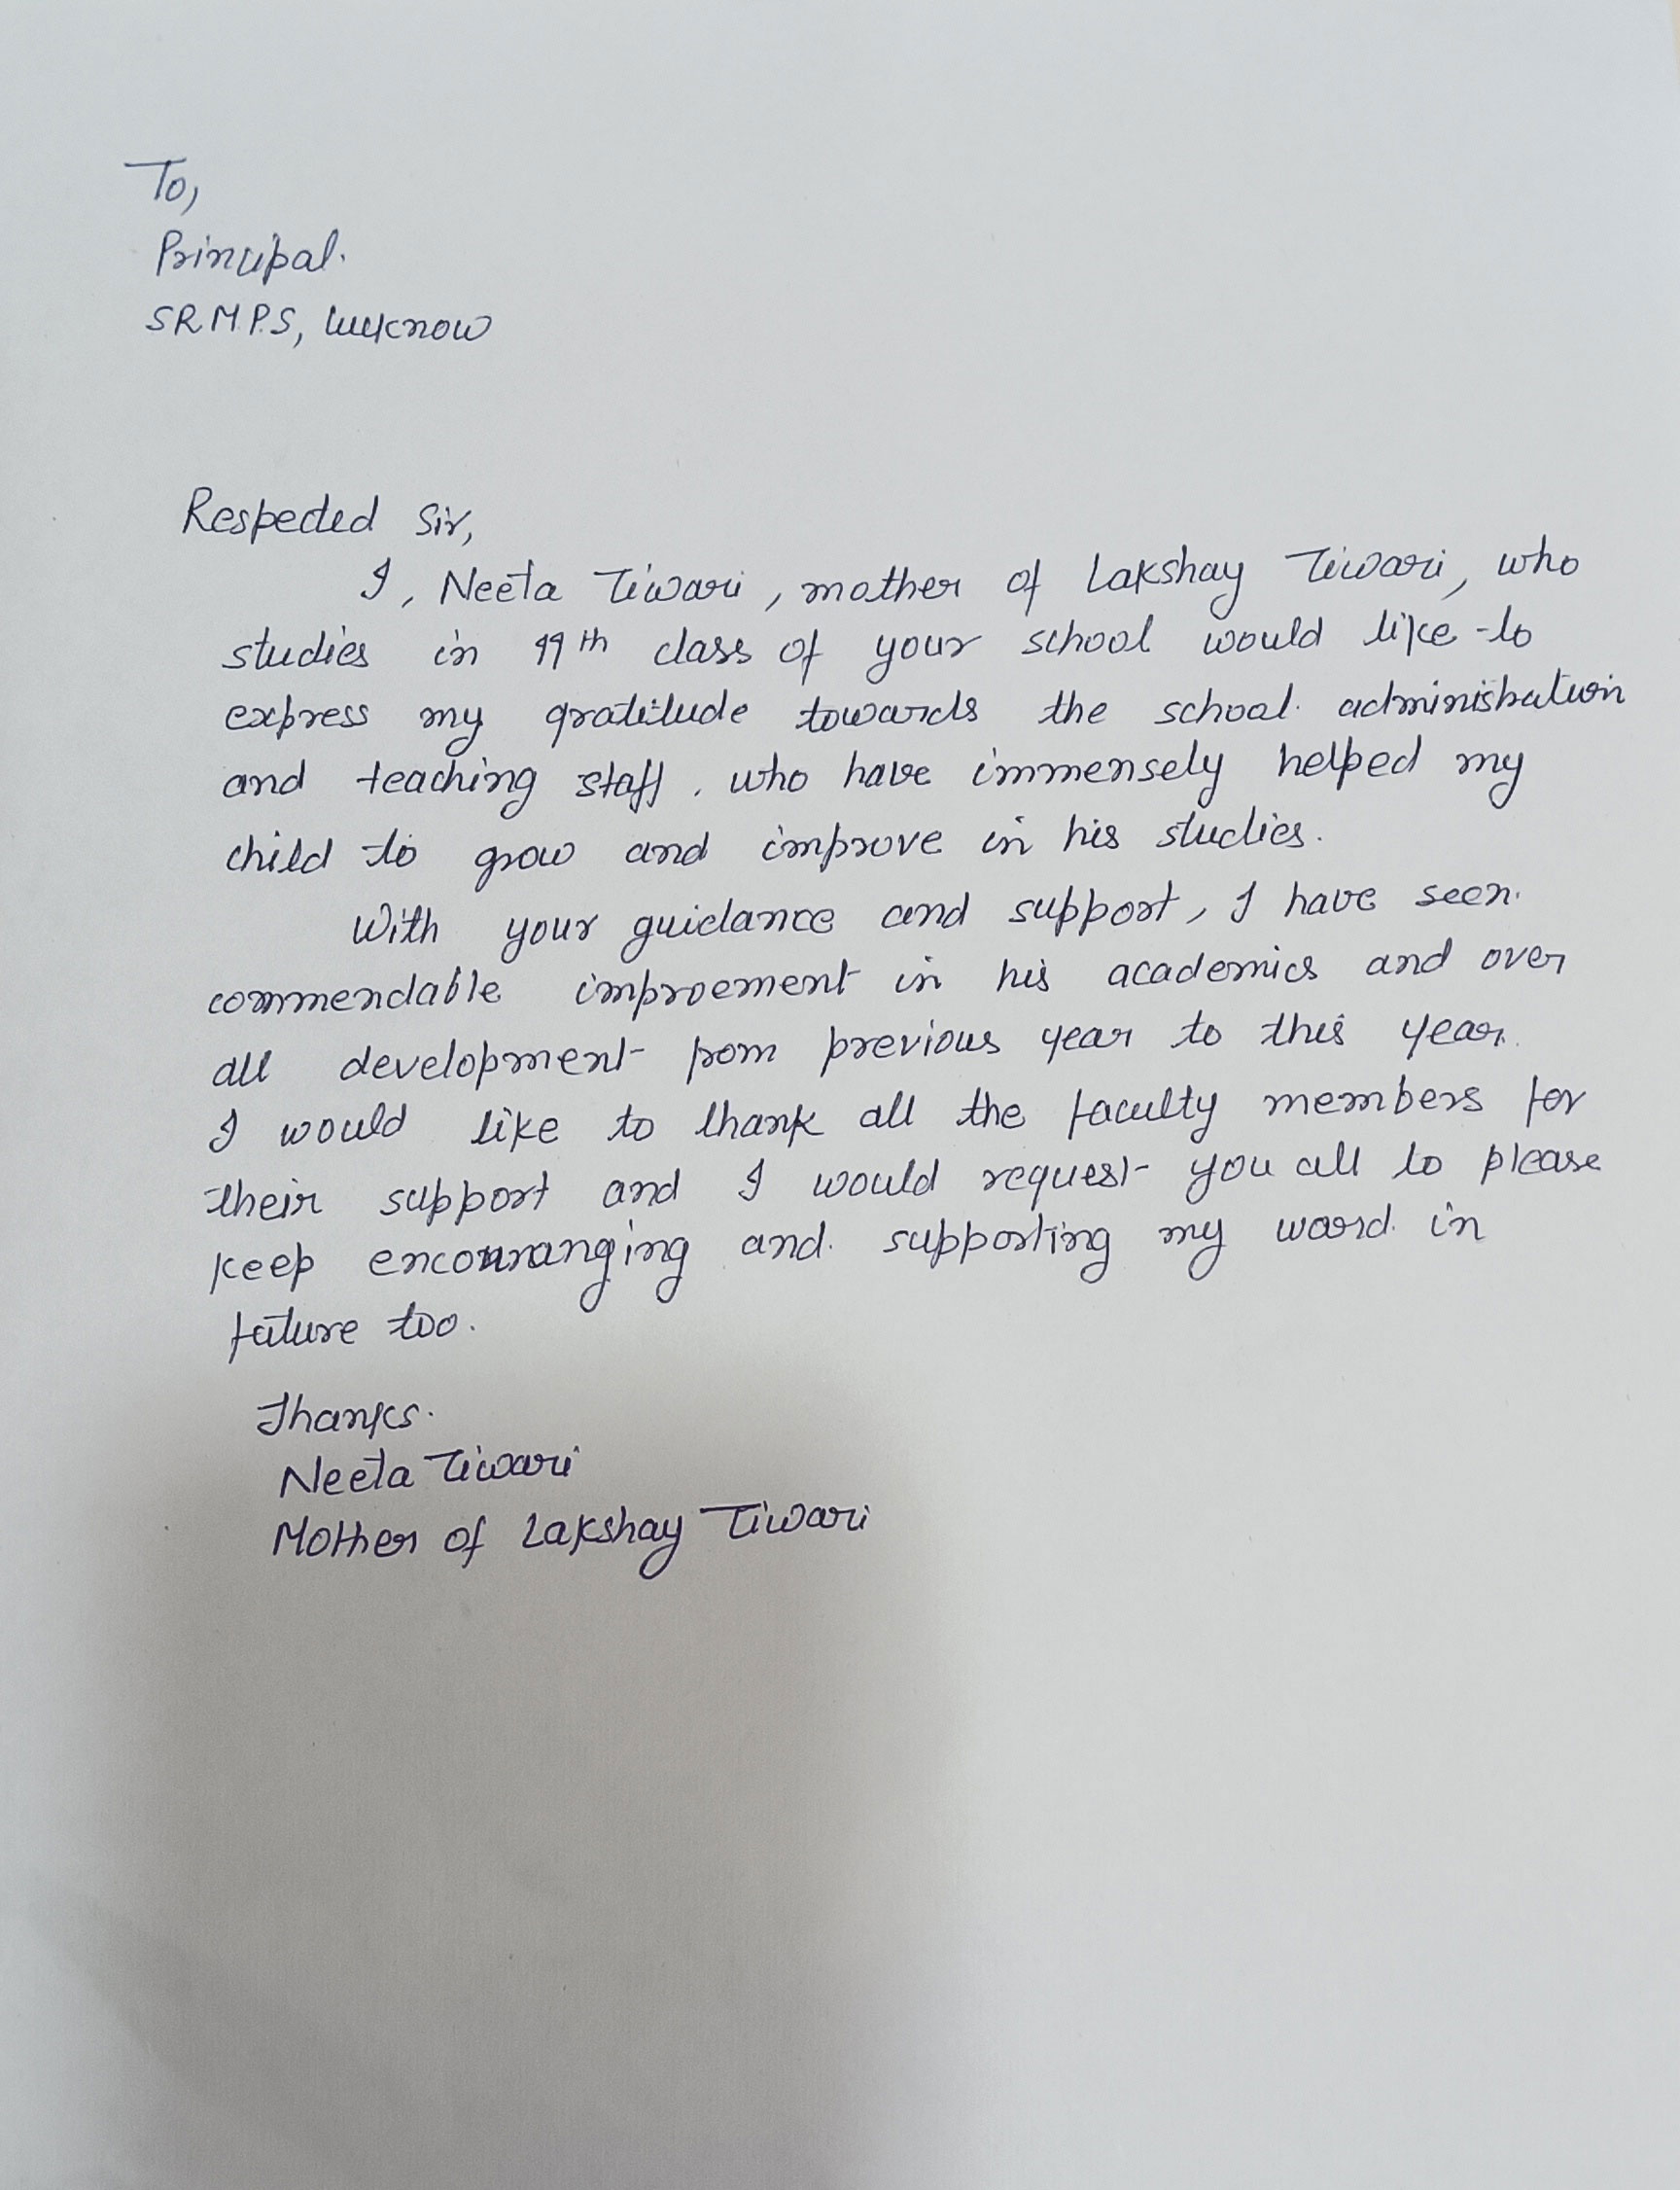 To,
Principal.
SRMP.S, Lucknow
Respected Sir,
I, Neeta Tiwari, mother of Lakshay Tiwari, who
studies in 11th class of your school would like to
express my gratitude towards the school administration
and teaching staff, who have immensely helped my
child to grow and improve in his studies.
With your guidance and support, I have seen.
commendable improement in his academics and over
all development from previous year to this year.
I would like to thank all the faculty members for
their support and I would request you all to please
keep encouranging and supporting my ward in
future too.
Thanks.
Neeta Tiwari
Mother of Lakshay Tiwari